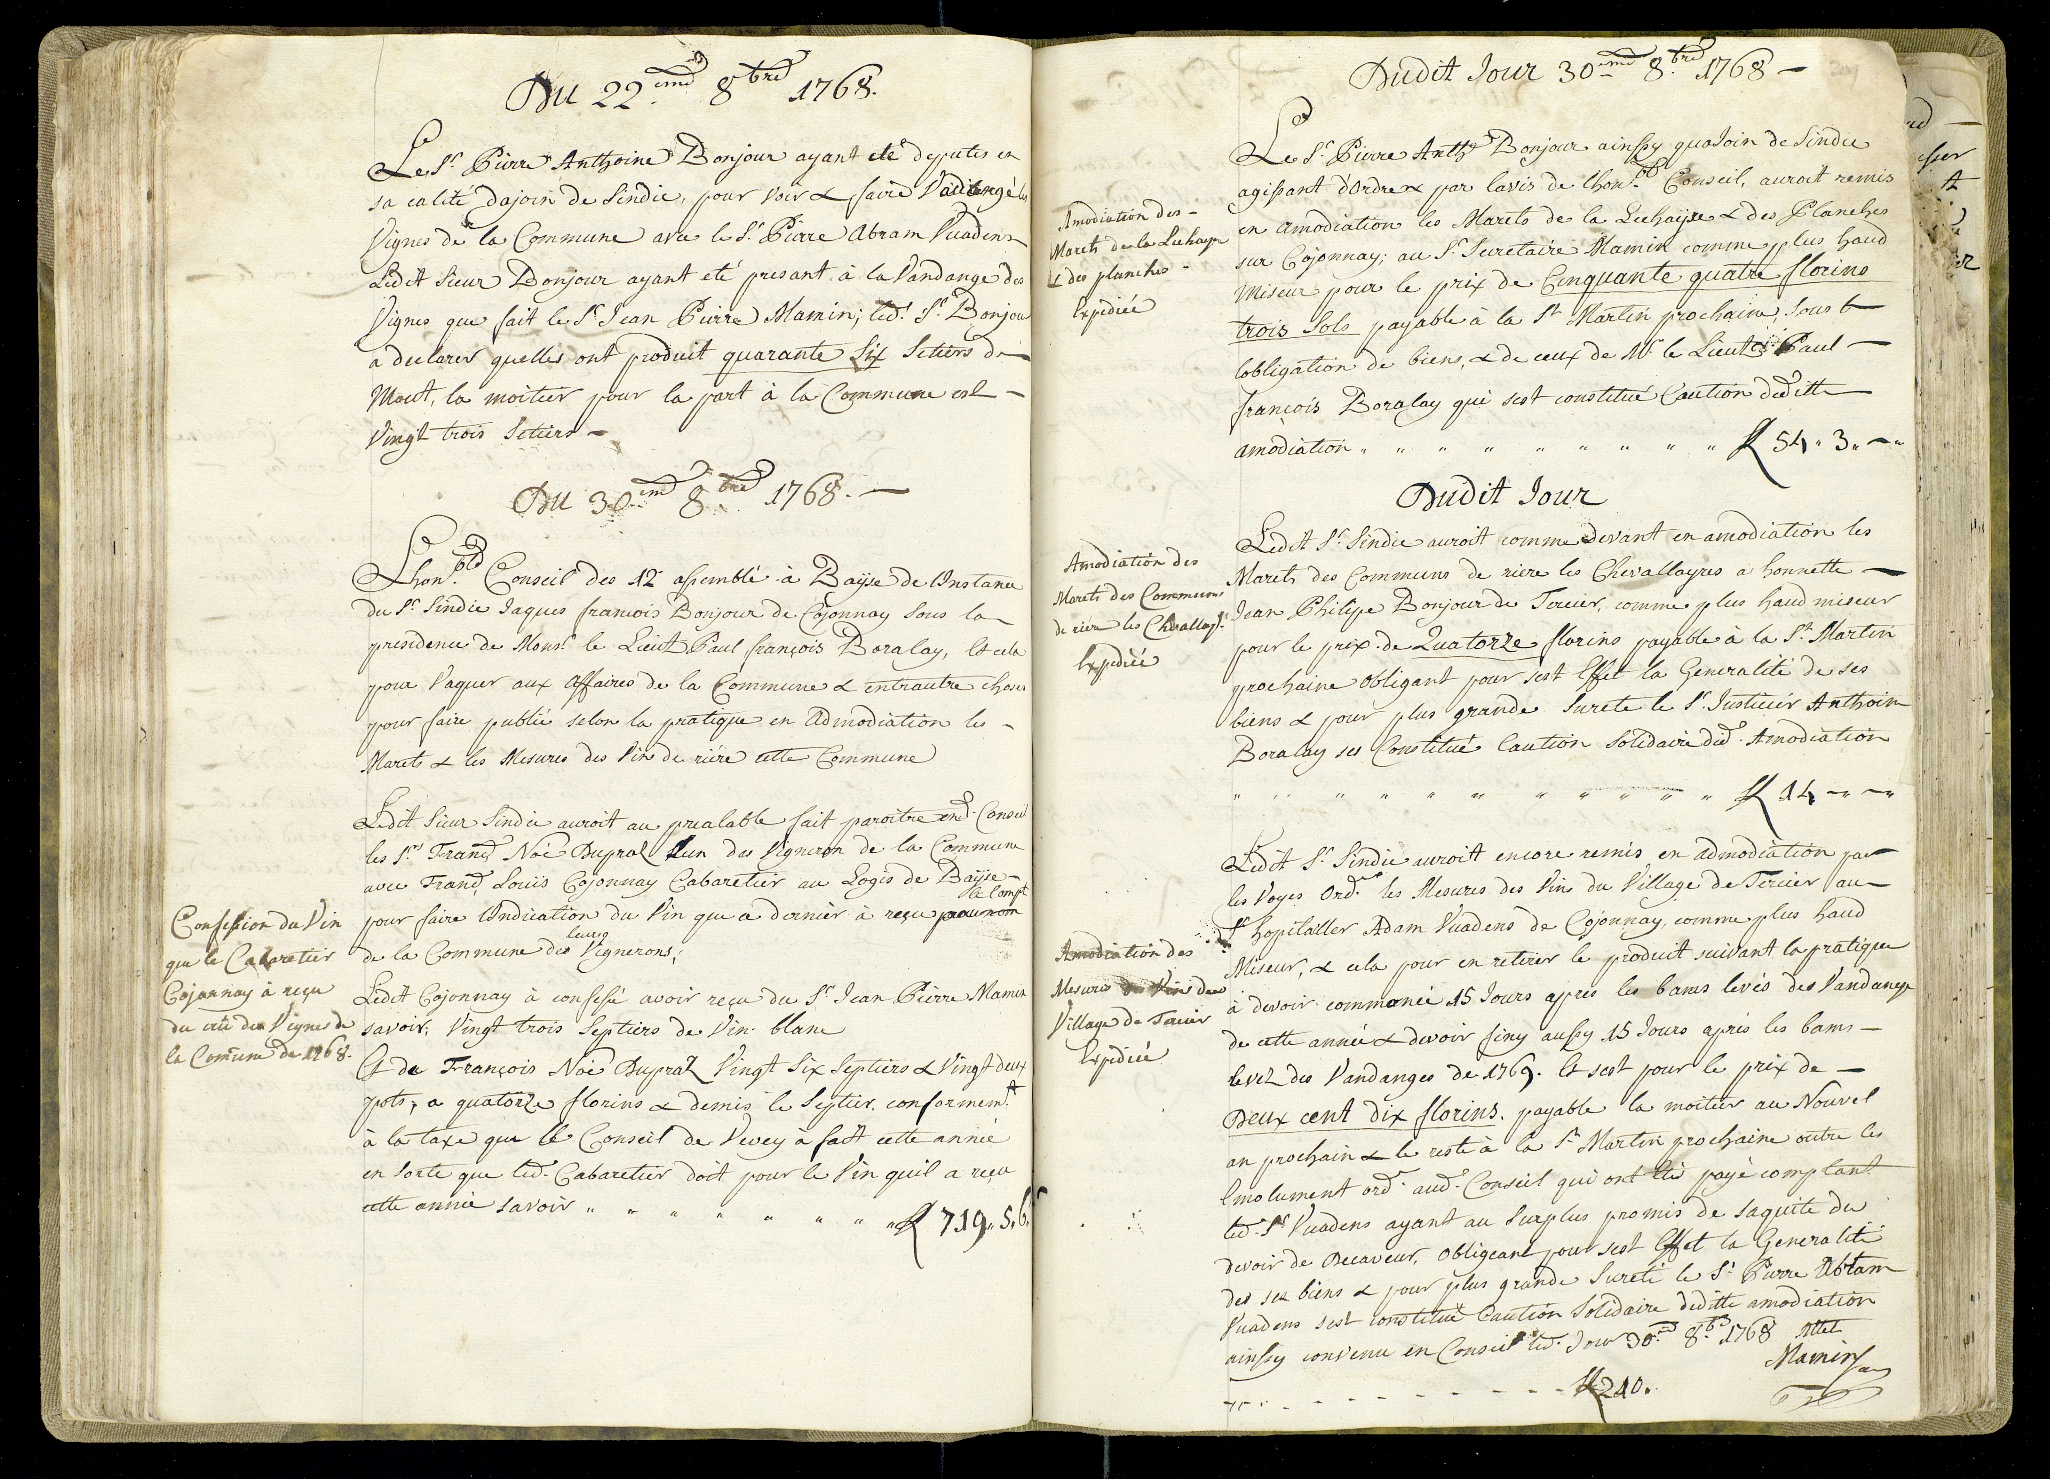 Du 22.eme 8bre 1768.
Le Sr. Pierre Anthoine Bonjour ayant eté deputés en
sa calité dajoin de Sindic, pour voir & faire Vandengé les
Vignes de la Commune avec le Sr. Pierre Abram Vuadens
Ledit Sieur Bonjour ayant eté presant à la Vandange des
Vignes que fait le Sr. Jean Pierre Mamin; led. Sr. Bonjour
a declarer quelles ont produit quarante Six Setiers de
Mout, la moitier pour la part à la Commune est
Vingt trois Setiers
Du 30.eme 8bre 1768.
Lhon.ble Conseil des 12 assemblé à Bayse de Linstance
du Sr. Sindic Jaques françois Bonjour de Cojonnay sous la
presidence de Monsr. le Lieut. Paul françois Boralay, Et cela
pour Vaquer aux affaires de la Commune & entrautre choses
pour faire publié selon la pratique en Admodiation les
Marets & les Mesures des Vin de riére cette Commune
Ledit Sieur Sindic auroit au prealable fait paroitre end. Conseil
les Srs. Franç. Noé Dupraz Lun des Vigneron de la Commune
avec Franç. Louis Cojonnay Cabaretier au Logis de Bayse
pour faire Lindication du Vin que a dernier à reçu pour nom
le Compt
de la Commune des Vignerons;
leurs
Confession du Vin
que le Cabaretier
Cojonnay à reçu
du crû des Vignes de
la Comune de 1768.
Ledit Cojonnay à confessé avoir reçu du Sr. Jean Pierre Mamin
savoir; Vingt trois Septiers de Vin blanc
Et de François Noé Dupraz Vingt Six Septiers & Vingt deux
pots, a quatorze florins & demis le Septier. conformemt.
à la taxe que le Conseil de Vevey à fait cette année
en sorte que led. Cabaretier doit pour le Vin quil a reçu
cette année savoir " " " " " " " 719. 5. 6.
Dudit Jour 30.eme 8.bre 1768 —
Amodiation des
Marets de la Lechayre
& des planches
Expediée
Le Sr. Pierre Anthe Bonjour ainssy quajoin de Sindic
agissant d'Ordre & par lavis de Lhon.ble Conseil, auroit remis
en amodiation les Marets de la Lechayre & des Planches
sur Cojonnay; au Sr. Secretaire Mamin comme plus haud
Miseur pour le prix de Cinquante quatre florins
trois Sols payable à la St. Martin prochaine, Sous
lobligation de biens, & de ceux de Mr. le Lieut. Paul
françois Boralay qui sest constitué Caution deditte
amodiation " " " " " " " " 54 " 3 " —
Dudit Jour
Amodiation des
Marets des Communs
de riere les Chevallayr.
Expediée
Ledit Sr. Sindic auroit comme devant en amodiation les
Marets des Communs de riere les Chevallayres a honnette
Jean Philipe Bonjour de Tercier, comme plus haud miseur
pour le prix de Quatorze florins payable à la St. Martin
prochaine obligant pour sest Effet la Generalité de ses
biens & pour plus grande Surete le Sr. Justicier Anthoine
Boralay ses Constitué Caution Solidaire ded. Amodiation
" " " " " " " " " " 14 — " —
Amodiation des
Mesures du Vin du
Village de Tercier
Expediée
Ledit Sr. Sindic auroit encore remis en admodiation par
les Voyes Ord.res les Mesures des Vins du Village de Tercier au
Sr. hopitaller Adam Vuadens de Cojonnay, comme plus haud
Miseur, & cela pour en retirer le produit suivant la pratique
à devoir commencé 15 Jours appres les bams levés des Vandanges
de cette année & devoir finy aussy 15 Jours aprés les bams
levez des Vandanges de 1769. Et sest pour le prix de
Deux cent dix florins. payable la moitier au Nouvel
an prochain & le reste à la St. Martin prochaine outre les
Emolument ord. aud. Conseil qui ont été payé complant
led. Sr. Vuadens ayant au Surplus promis de saquité du
devoir de Decaveur, Obligeant pour sest Effet la Generalité
des ses biens & pour plus grande Sureté le Sr. Pierre Abram
Vuadens sest constitué Caution Solidaire deditte amodiation
ainssy convenu en Conseil led. Jour 30.e 8.bre 1768 Attet
Mamin
210.